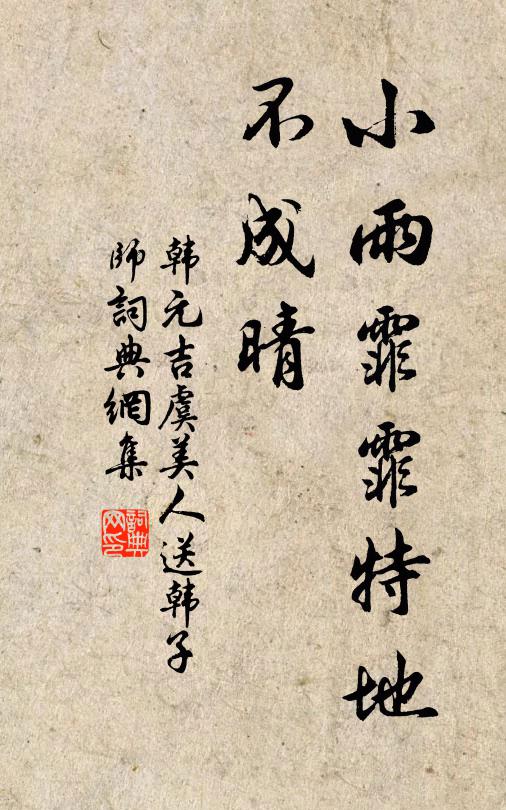 小雨霏霏特地
不成晴
韩元吉虞美人送韩子
师詞典網集
詞典
网印